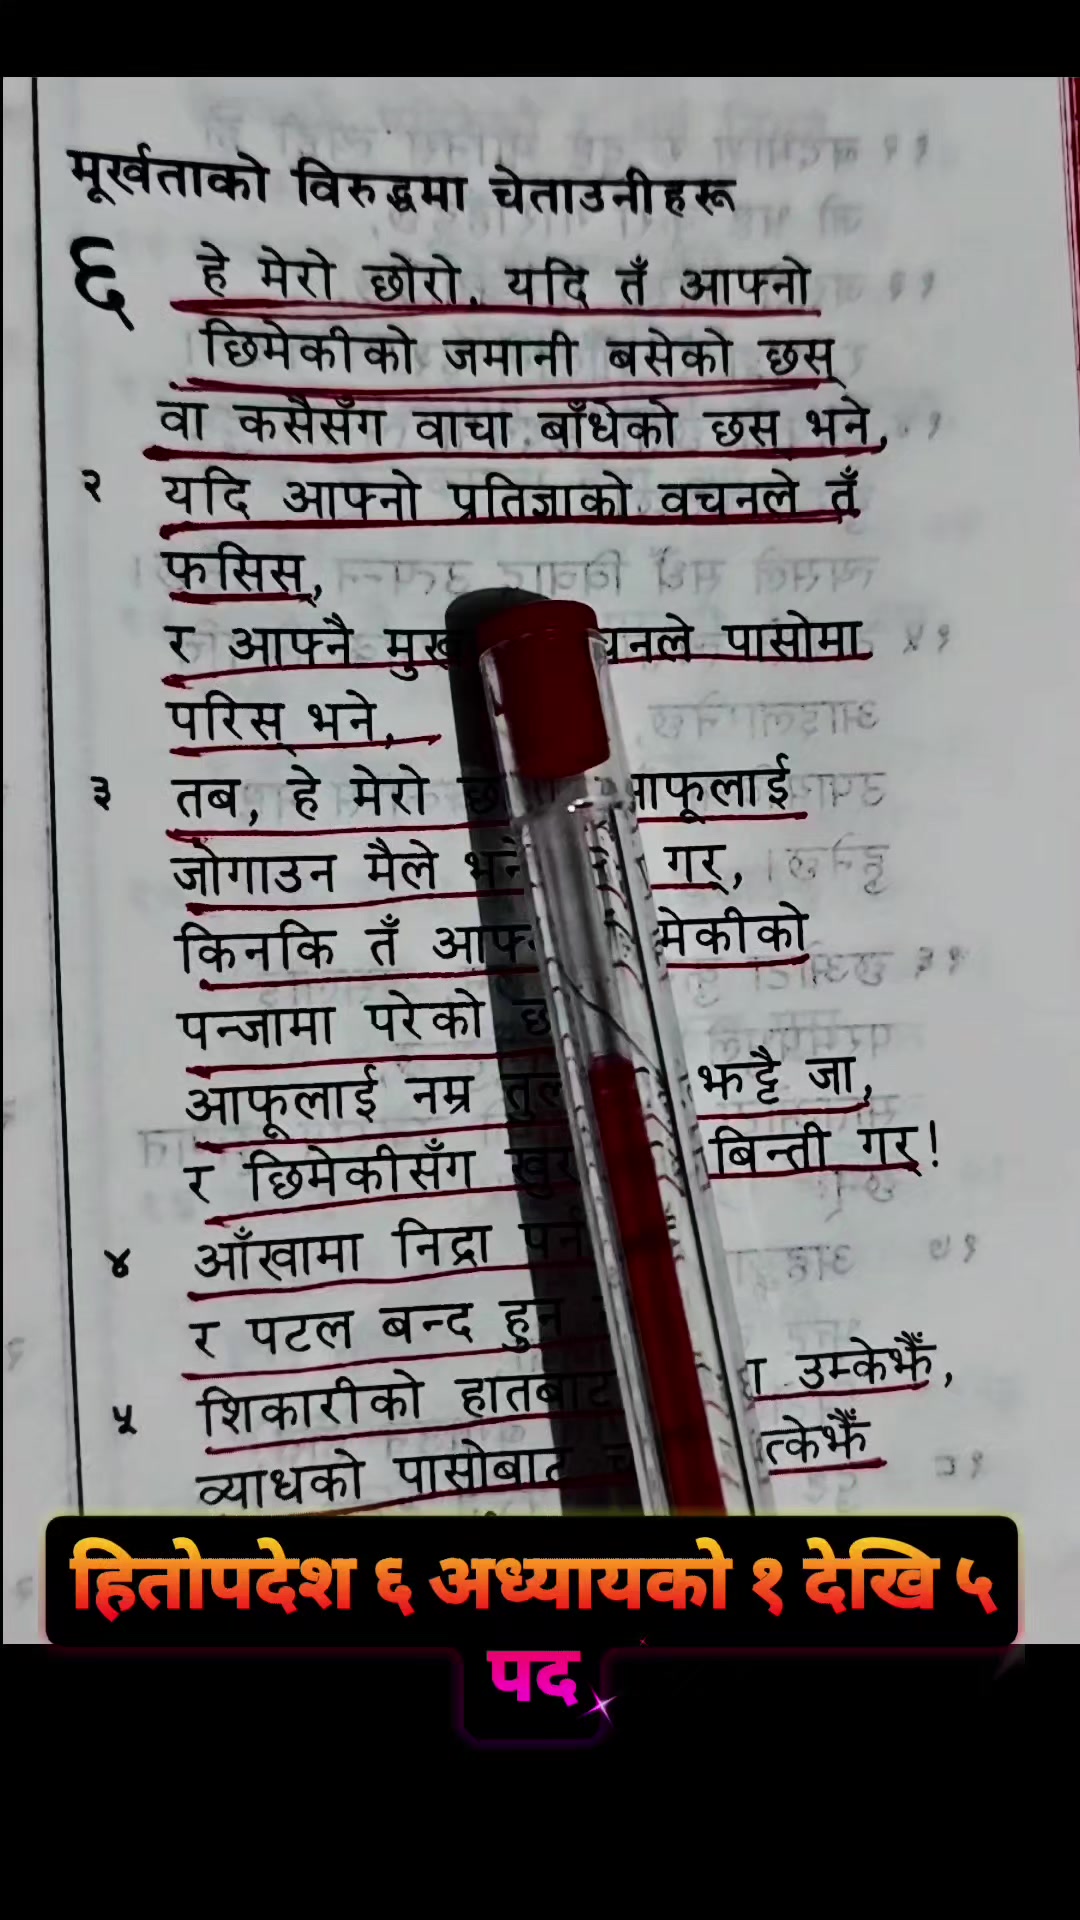 मूर्खताको विरुद्धमा चेताउनीहरू
६ हे मेरो छोरो, यदि तँ आफ्नो
छिमेकीको जमानी बसेको छस्
वा कसैसँग वाचा बाँधेको छस् भने,
२ यदि आफ्नो प्रतिज्ञाको वचनले तँ
फसिस्,
र आफ्नै वचनले पासोमा
परिस् भने,
३ तब, हे मेरो आफूलाई
जोगाउन मैले गर्,
किनकि तँ
पन्जामा परेको
आफूलाई नम्र झट्टै जा,
र छिमेकीसँग बिन्ती गर्!
४ आँखामा निद्रा
र पटल बन्द हुन
५ शिकारीको हातबाट उम्केझैँ,
व्याधको पासोबाट
हितोपदेश ६ अध्यायको १ देखि ५
पद